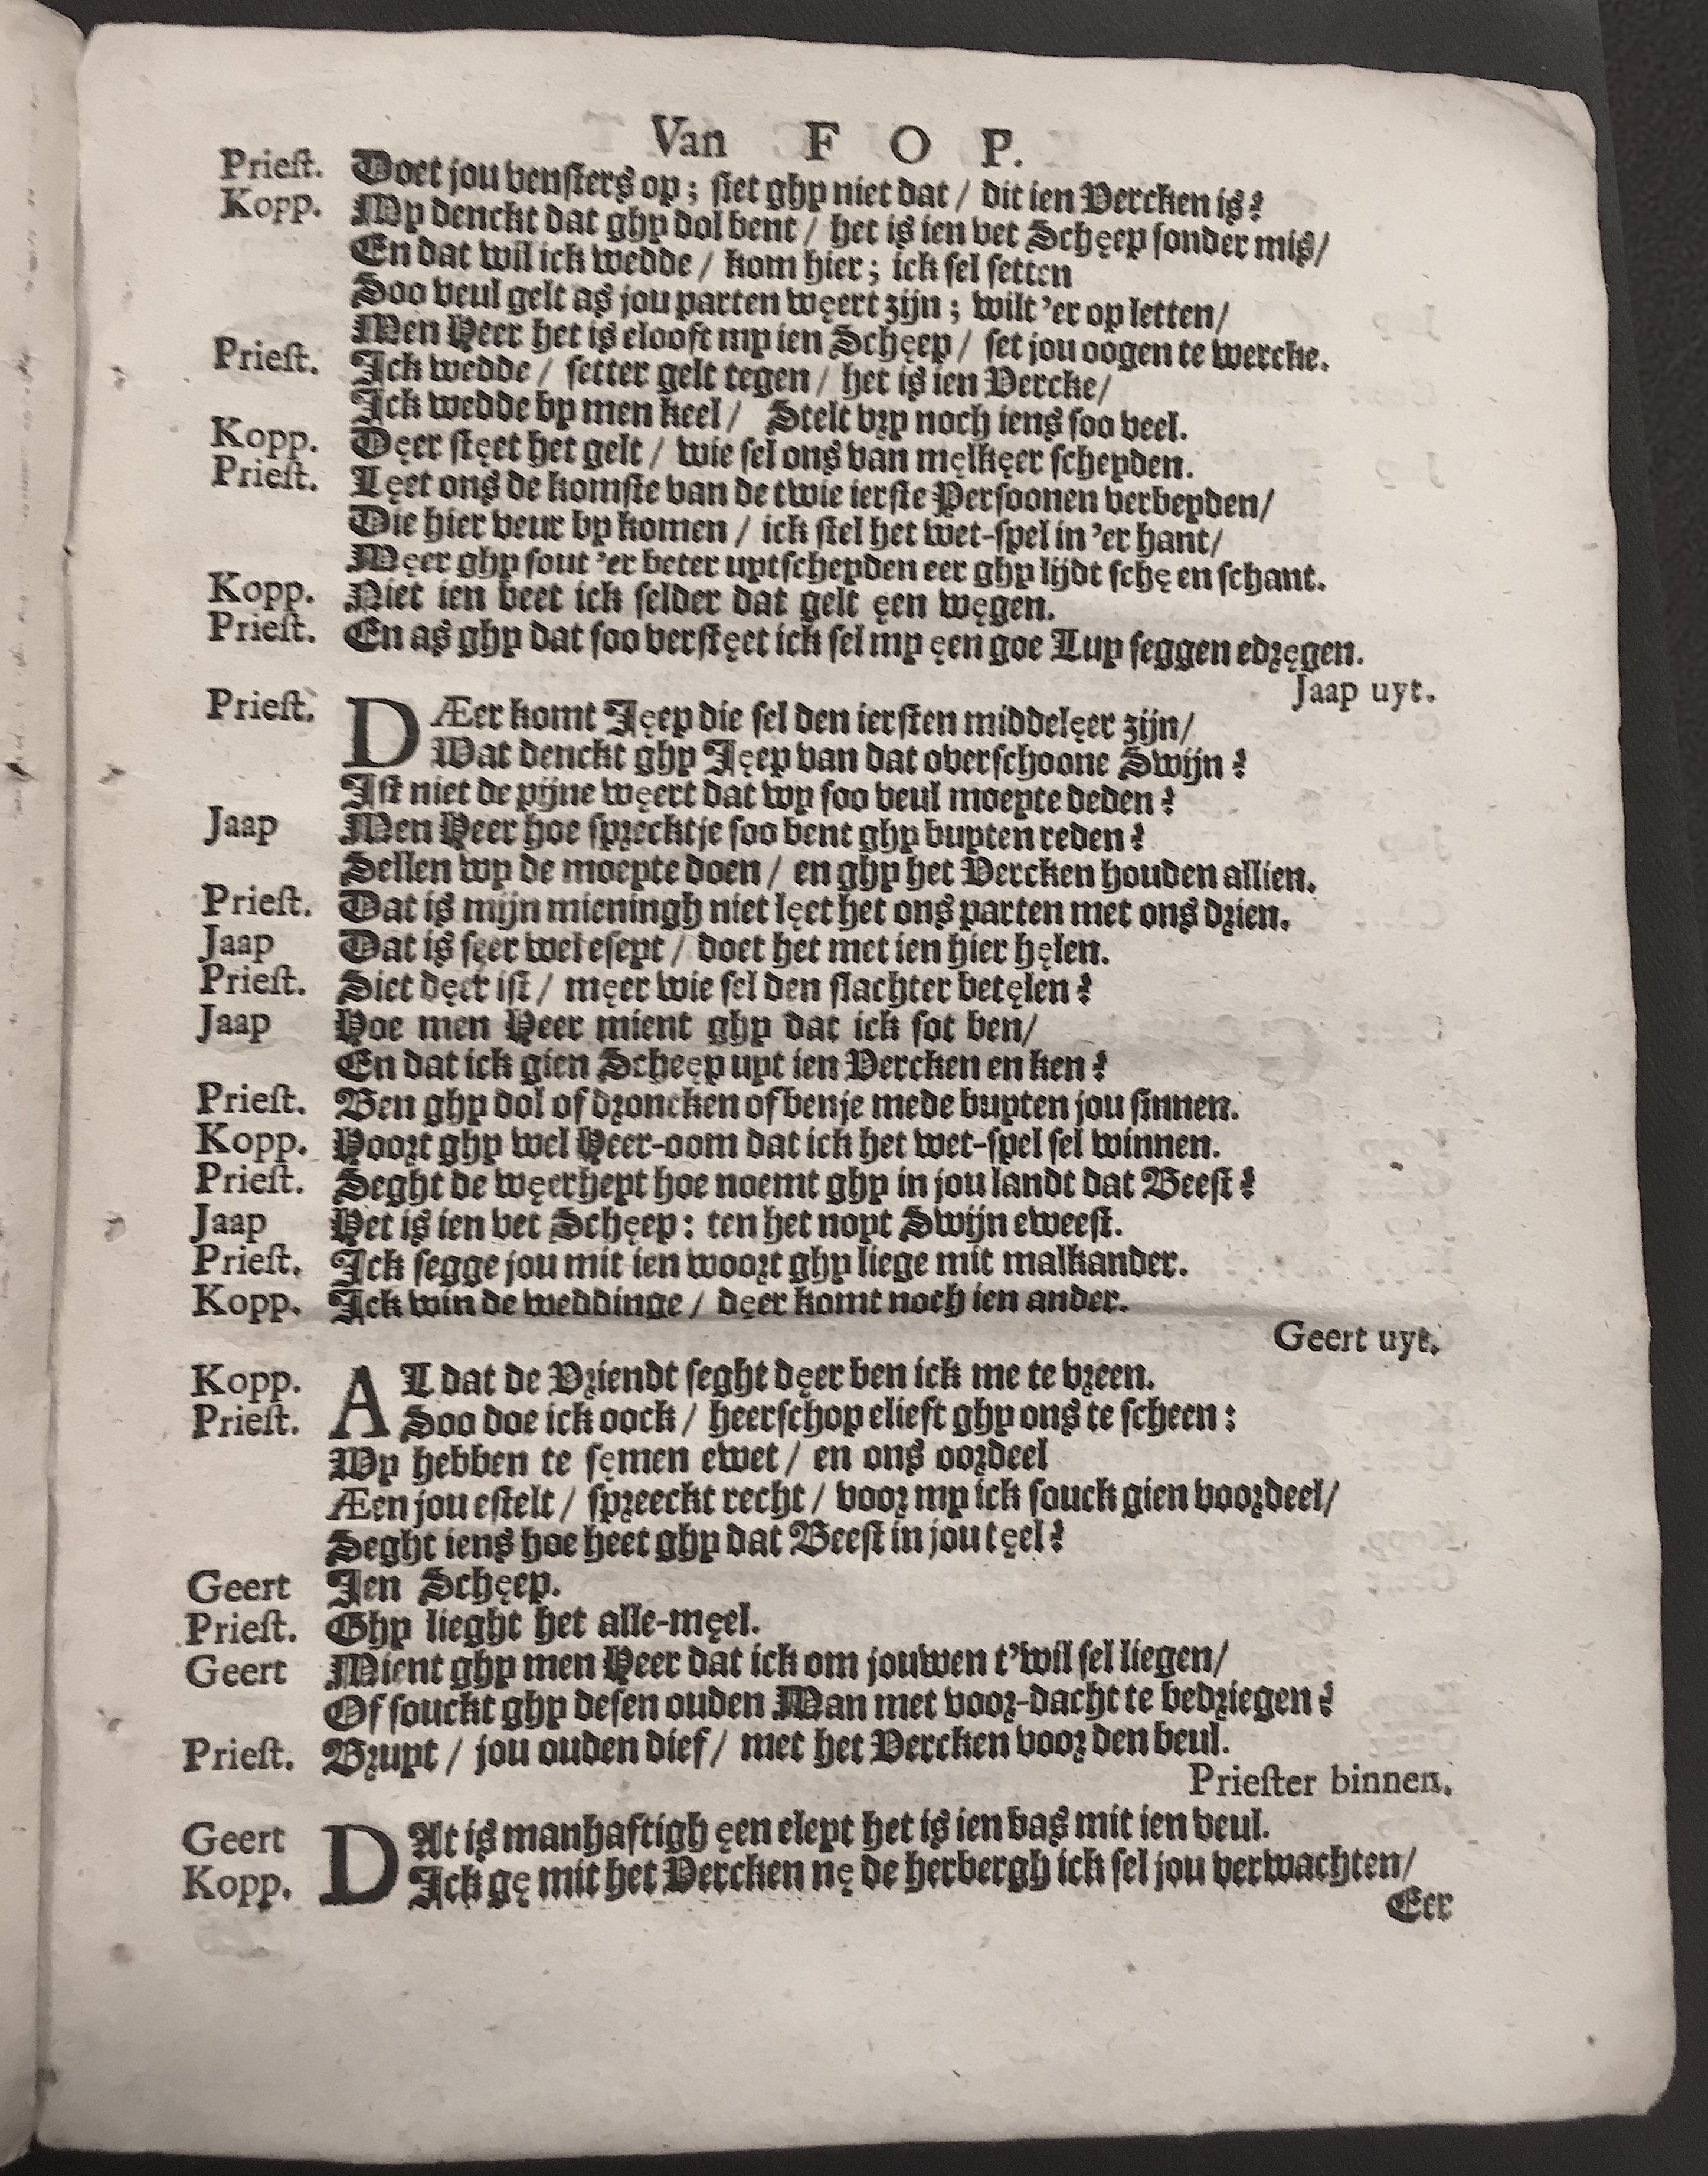 Van F O P.
Priest. Doet jou vensters op; siet ghy niet dat / dit ien Vercken is?
Kopp. My denckt dat ghy dol bent / het is ien vet Schęep sonder mis/
En dat wil ick wedde / kom hier; ick sel setten
Soo veul gelt as jou parten węert zijn; wilt 'er op letten/
Men Heer het is elooft my ien Schęep / set jou oogen te wercke.
Priest. Ick wedde / setter gelt tegen / het is ien Vercke/
Ick wedde by men keel / Stelt vry noch iens soo veel.
Kopp. Dęer stęet het gelt / wie sel ons van męlkęer scheyden.
Priest. Lęet ons de komste van de twie ierste Persoonen verbeyden/
Die hier veur by komen / ick stel het wet-spel in 'er hant/
Męer ghy sout 'er beter uytscheyden eer ghy lijdt schę en schant.
Kopp. Niet ien beet ick selder dat gelt ęen węgen.
Priest. En as ghy dat soo verstęet ick sel my ęen goe Luy seggen edręgen.
Jaap uyt.
Priest. DÆer komt Jęep die sel den iersten middelęer zijn/
Wat denckt ghy Jęep van dat overschoone Swijn?
Ist niet de pijne węert dat wy soo veul moeyte deden?
Jaap Men Heer hoe sprecktje soo bent ghy buyten reden?
Sellen wy de moeyte doen / en ghy het Vercken houden allien.
Priest. Dat is mijn mieningh niet lęet het ons parten met ons drien.
Jaap Dat is sęer wel eseyt / doet het met ien hier hęlen.
Priest. Siet dęer ist / męer wie sel den slachter betęlen?
Jaap Hoe men Heer mient ghy dat ick sot ben/
En dat ick gien Scheęp uyt ien Vercken en ken?
Priest. Ben ghy dol of droncken of benje mede buyten jou sinnen.
Kopp. Hoort ghy wel Heer-oom dat ick het wet-spel sel winnen.
Priest. Seght de węerheyt hoe noemt ghy in jou landt dat Beest?
Jaap Het is ien vet Schęep: ten het noyt Swijn eweest.
Priest. Ick segge jou mit ien woort ghy liege mit malkander.
Kopp. Ick win de weddinge / dęer komt noch ien ander.
Geert uyt.
Kopp. AL dat de Vriendt seght dęer ben ick me te vreen.
Priest. Soo doe ick oock / heerschop elieft ghy ons te scheen:
Wy hebben te sęmen ewet / en ons oordeel
Æen jou estelt / spreeckt recht / voor my ick souck gien voordeel/
Seght iens hoe heet ghy dat Beest in jou tęel?
Geert Ien Schęep.
Priest. Ghy lieght het alle-męel.
Geert Mient ghy men Heer dat ick om jouwen t'wil sel liegen/
Of souckt ghy desen ouden Man met voor-dacht te bedriegen?
Priest. Bruyt / jou ouden dief / met het Vercken voor den beul.
Priester binnen.
Geert DAt is manhaftigh ęen eleyt het is ien bas mit ien veul.
Kopp. Ick gę mit het Vercken nę de herbergh ick sel jou verwachten/
Eer